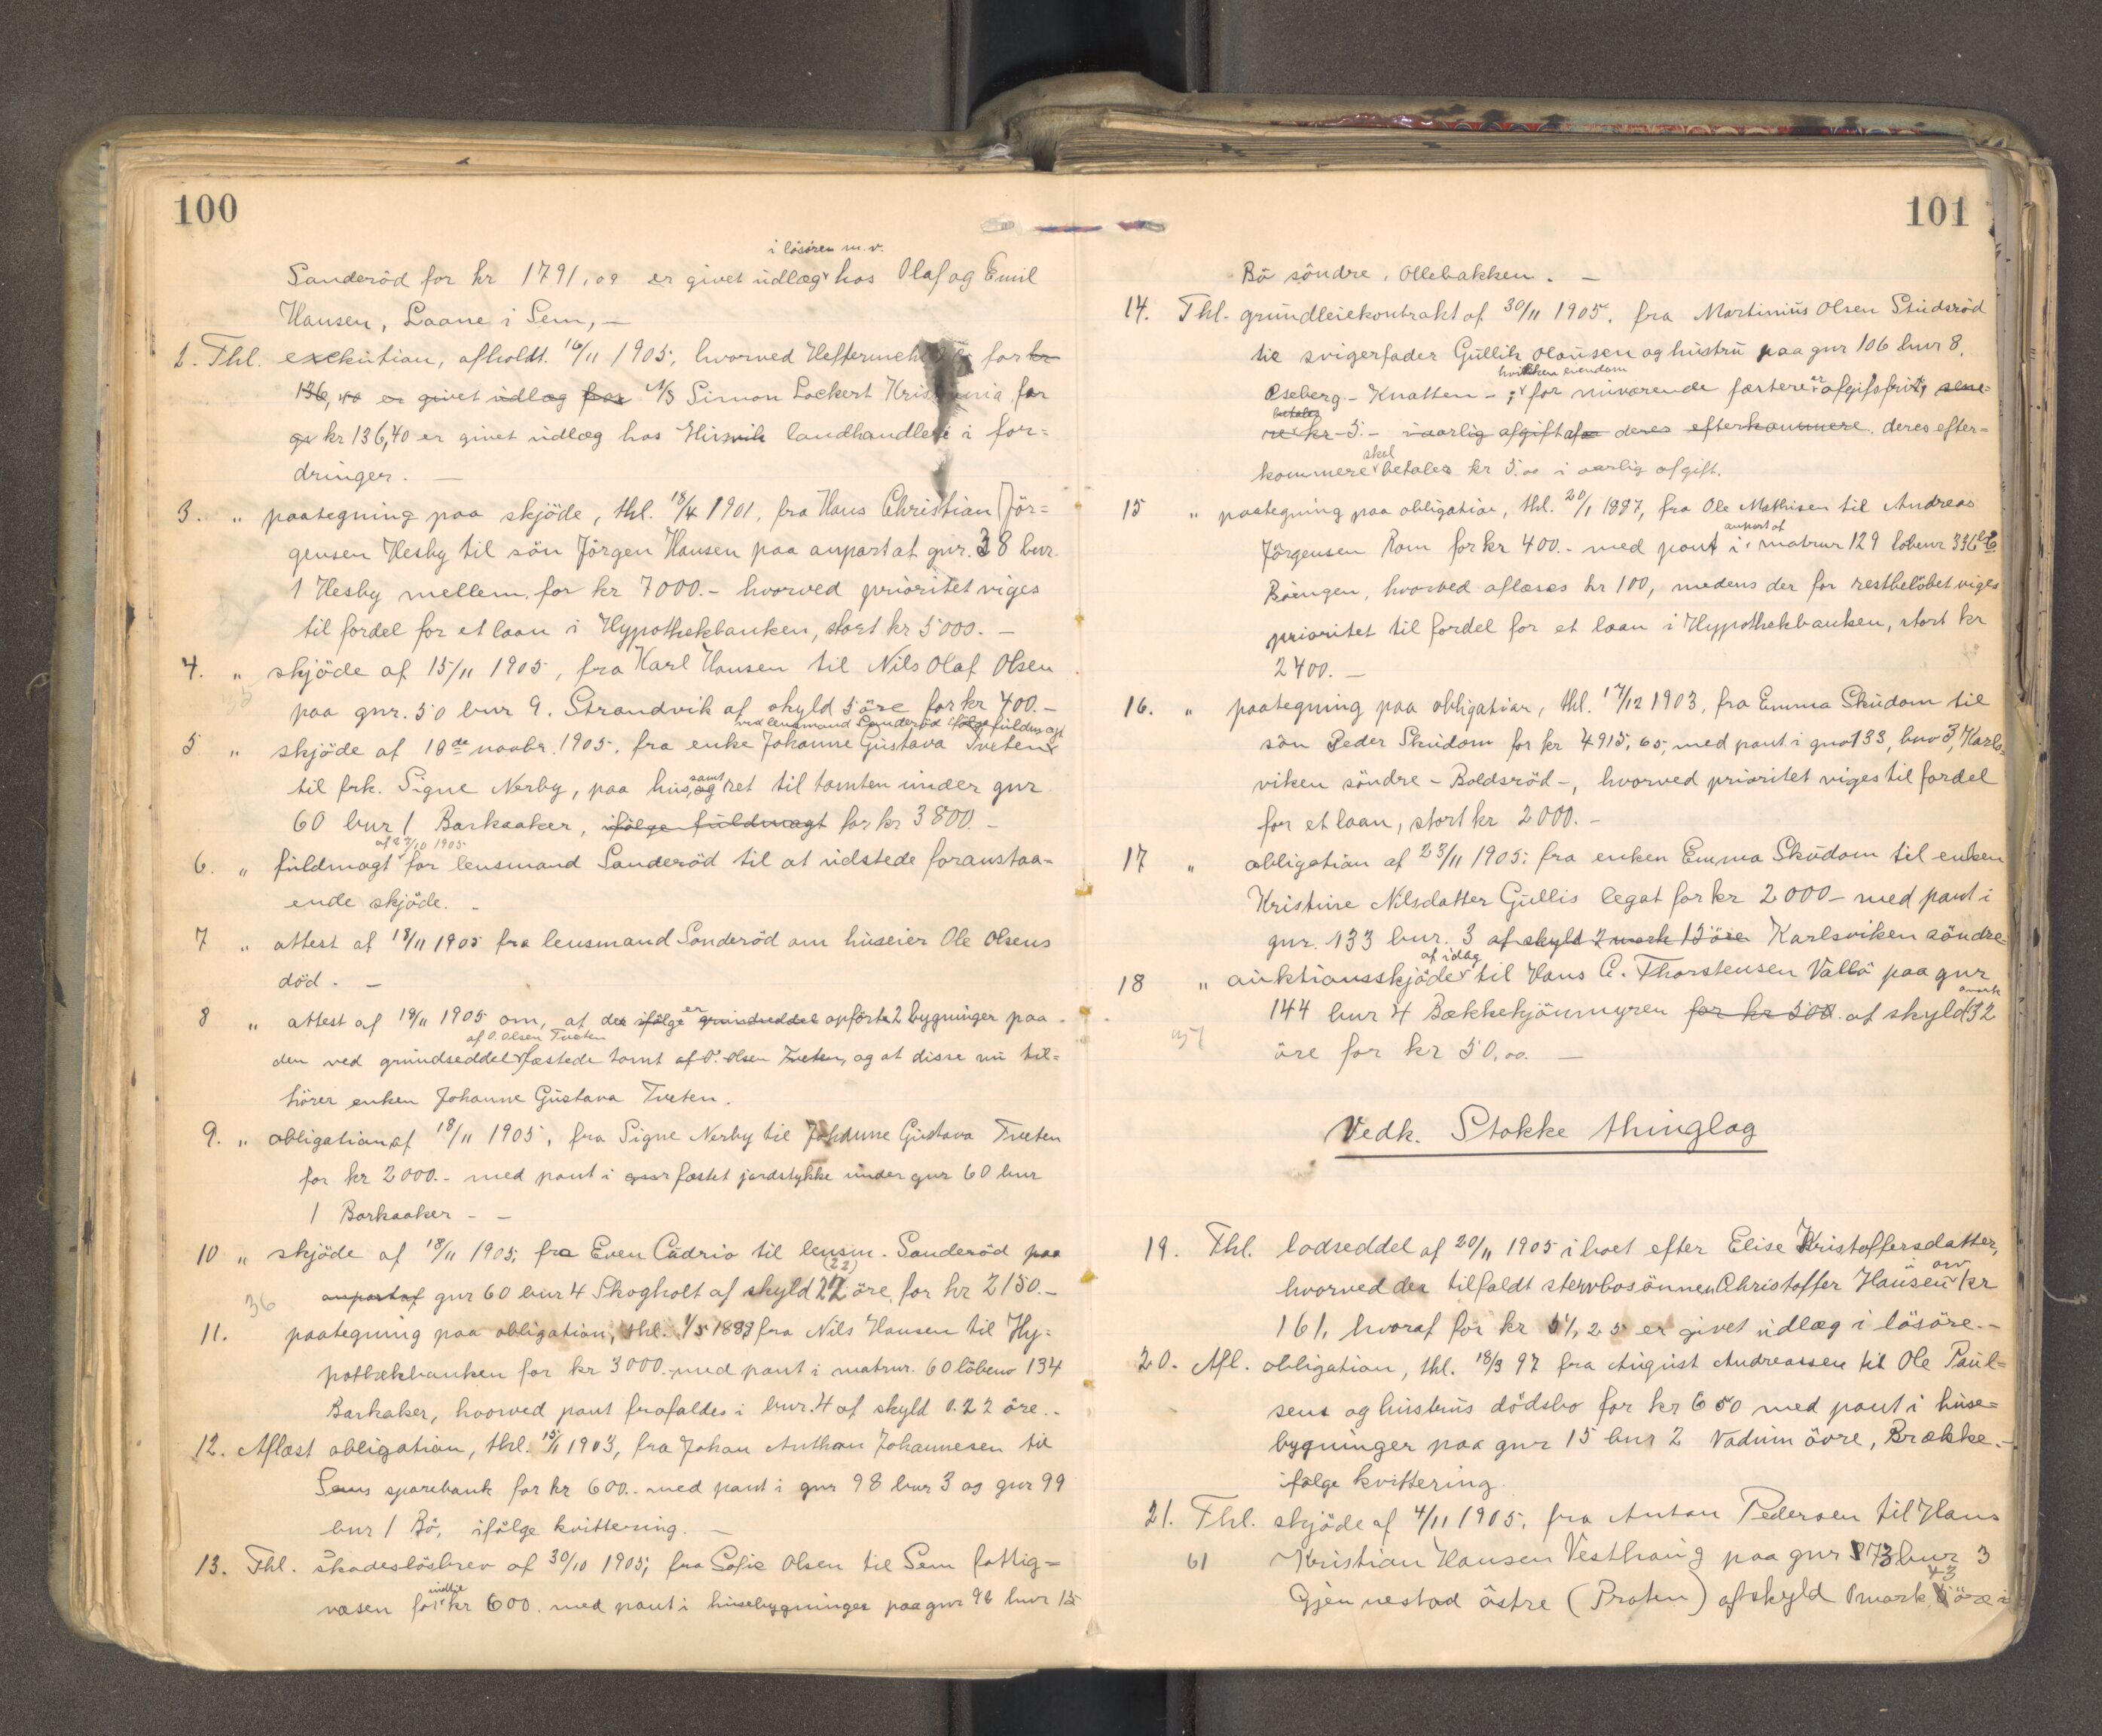 100
i lösören m.v.
Sanderöd for kr 1791,09 er givet udlæg hos Olaf og Emil
Hansen, Laane i Sem, —
2. Thl. exekution, afholdt 16/11 1905, hvorved for kr
136,40 er givet udlæg for A/S Simon Lockert Kristiania for
kr 136,40 er givet udlæg hos landhandleri i for=
dringer. —
3. „ paategning paa skjöde, thl. 18/4 1901, fra Hans Christian Jör=
gensen Hesby til sön Jörgen Hansen paa anpart af gnr. 38 bnr.
1 Hesby mellem, for kr 7000.- hvorved prioritet viges
til fordel for et laan i Hypothekbanken, stort kr 5000. —
4. „ skjöde af 15/11 1905, fra Karl Hansen til Nils Olaf Olsen
paa gnr. 50 bnr 9. Strandvik af skyld 5 öre for kr 400.-
ved lensmand Sanderöd ifölge fuldmagt
5 „ skjöde af 18de novbr. 1905, fra enke Johanne Gustava Tveten
til frk. Signe Nerby, paa hus, og samt ret til tomten under gnr
60 bnr 1 Barkaaker, ifölge fuldmagt for kr 3800.-
af 27/10 1905
6. „ fuldmagt for lensmand Sanderöd til at udstede foranstaa=
ende skjöde. -
7 „ attest af 18/11 1905 fra lensmand Sanderöd om huseier Ole Olsens
död. —
8 „ attest af 18/11 1905 om, at der ifölge er grundseddel opförte 2 bygninger paa
af O. Olsen Tveten
den ved grundseddel fæstede tomt af O. Olsen Tveten, og at disse nu til=
hörer enken Johanne Gustava Tveten.
9. „ obligation af 18/11 1905, fra Signe Nerby til Johanne Gustava Tveten
for kr 2000.- med pant i gnr fæstet jordstykke under gnr 60 bnr
1 Barkaaker - -
10 „ skjöde af 18/11 1905, fra Even Cudrio til lensm. Sanderöd paa
(22)
36 anpart af gnr 60 bnr 4 Skogholt af skyld 22 öre, for kr 2150.-
11. paategning paa obligation, thl. 1/5 1889 fra Nils Hansen til Hy=
pothekbanken for kr 3000.- med pant i matrnr. 60 löbenr 134
Barkaker, hvorved pant frafaldes i bnr. 4 af skyld 0.22 öre.-
12. Aflæst obligation, thl. 15/11 1903, fra Johan Anthon Johannesen til
Sems sparebank for kr 600.- med pant i gnr 98 bnr 3 og gnr 99
bnr 1 Bö, ifölge kvittering. —
13. Thl. skadeslösbrev af 30/10 1905, fra Sofie Olsen til Sem fattig=
indtil
væsen for kr 600. med pant i husebygninger paa gnr 96 bnr 15
101
Bö söndre, Ollebakken. —
14. Thl. grundleiekontrakt af 30/11 1905, fra Martinius Olsen Studsröd
til svigerfader Gullik Olausen og hustru paa gnr 106 bnr 8,
hvilken eiendom
Oseberg - Knatten -; for nuværende fæstere er afgiftsfrit, sene=
betales
re kr 5.- i aarlig afgift af deres efterkommere. deres efter=
skal
kommere betales kr 5.00 i aarlig afgift.
15 „ paategning paa obligation, thl. 20/1 1897, fra Ole Mathisen til Andreas
anpart af
Jörgensen Rom for kr 400.- med pant i matrnr 129 löbenr 336
Böengen, hvorved aflæses kr 100, medens der for restbelöbet viges
prioritet til fordel for et laan i Hypothekbanken, stort kr
2400. —
16. „ paategning paa obligation, thl. 17/12 1903, fra Emma Skudom til
sön Peder Skudom for kr 4915,65, med pant i gnr 133, bnr 3, Karls=
viken söndre - Boldsröd -, hvorved prioritet viges til fordel
for et laan, stort kr 2000. -
17 „ obligation af 23/11 1905, fra enken Emma Skudom til enken
Kristine Nilsdatter Gullis legat for kr 2000 - med pant i
gnr. 133 bnr. 3 af skyld 2 mark 15 öre Karlsviken söndre
af idag
18 „ auktionsskjöde til Hans C. Thorstensen Vallö paa gnr
0 mark
144 bnr 4 Bækkekjönmyren for kr 500. af skyld 32
öre for kr 50,00. —
Vedk. Stokke thinglag
19. Thl. lodseddel af 20/11 1905 i boet efter Elise Kristoffersdatter,
arv
hvorved der tilfaldt stervbosönnen Christoffer Hansen kr
161, hvoraf for kr 51,25 er givet udlæg i lösöre.-
20. Afl. obligation, thl. 18/3 97 fra August Andreassen til Ole Paul=
sens og hustrus dödsbo for kr 650 med pant i huse=
bygninger paa gnr 15 bnr 2 Vadum övre, Brække.-
ifölge kvittering.
21. Thl. skjöde af 4/11 1905, fra Anton Pedersen til Hans
61 Kristian Hansen Vesthaug paa gnr 73 bnr 3
43
Gjennestad östre (Proten) af skyld 0 mark öre i